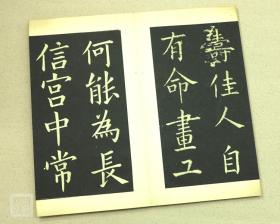 佳人自
有命畫工
何能為長
信宮中常